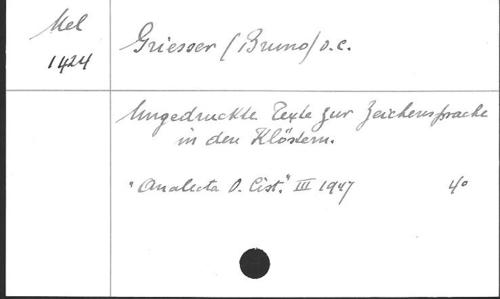 Mel
1424
Griesser (Bruno) o.c.
Ungedruckte Texte zur Zeichensprache
in den Klöstern.
"Analecta O. Cist." III 1947 4°